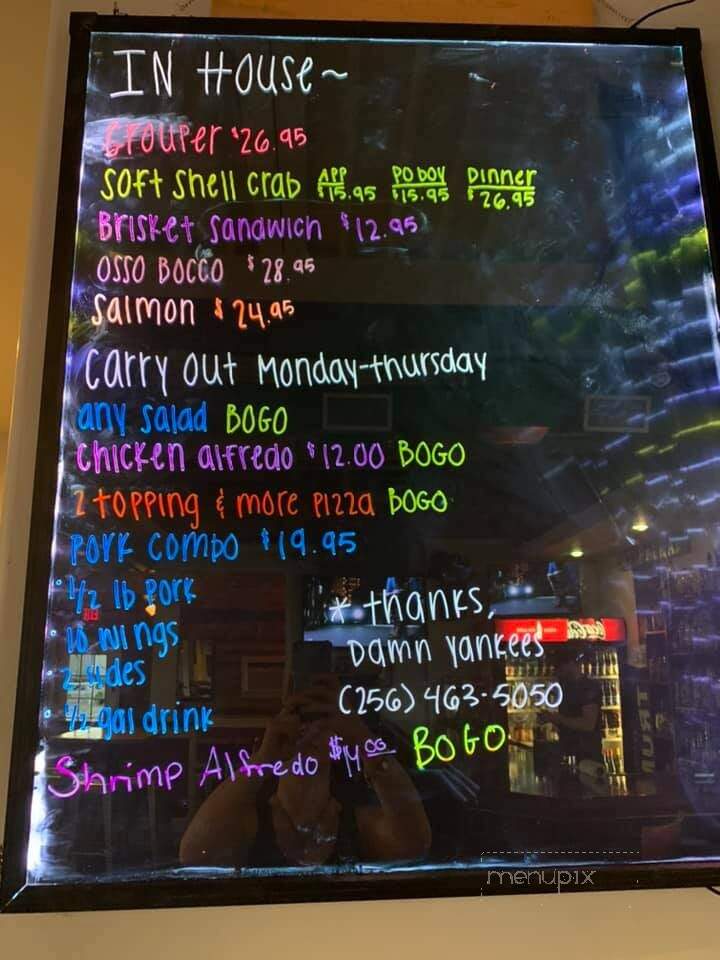 IN House~
Grouper $26.95
Soft Shell Crab APP $15.95 PO BOY $15.95 Dinner $26.95
Brisket Sandwich $12.95
OSSO BOCCO $28.95
Salmon $24.95
Carry out Monday-thursday
any salad BOGO
Chicken alfredo $12.00 BOGO
2 topping & more Pizza BOGO
Pork Combo $19.95
• 1/2 lb Pork
• 10 wings
• 2 sides
• 1/2 gal drink
* thanks,
Damn Yankees
(256) 463-5050
Shrimp Alfredo $14.00 BOGO
Coca-Cola
menupix